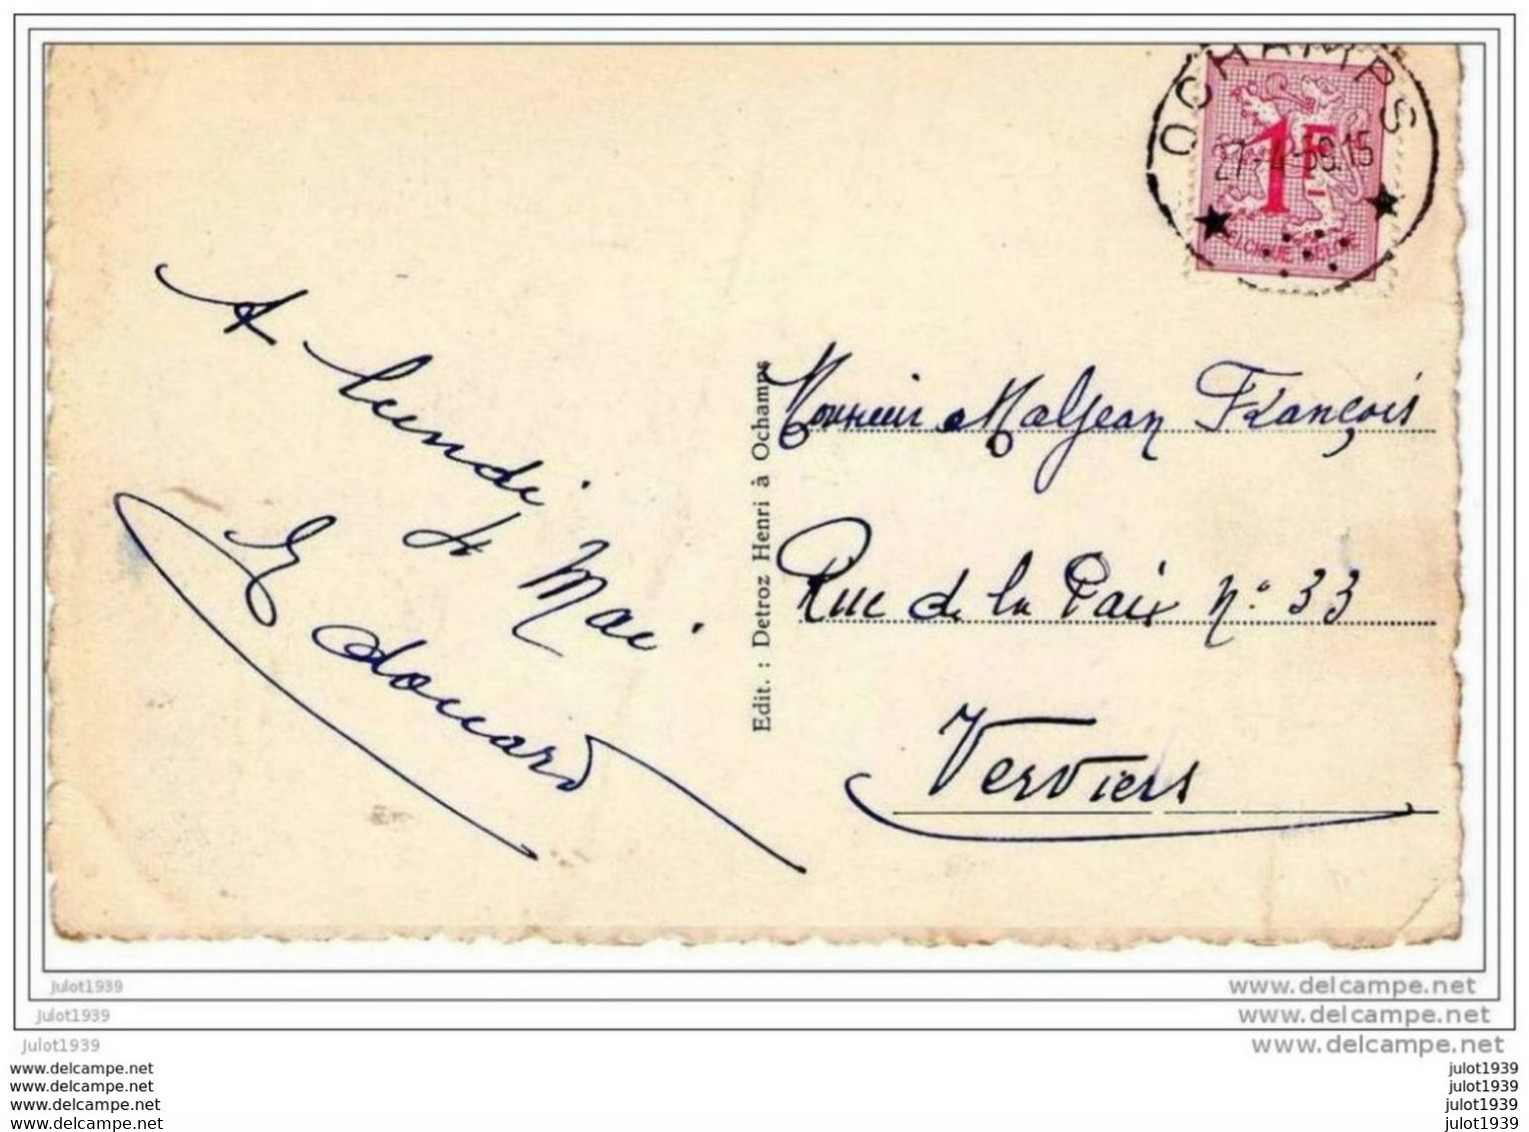 OCHAMPS
15
1F
BELGIQUE BELGIE
A lundi
4 Mai
Edouard
Edit. : Detroz Henri à Ochamps
Monsieur Maljean François
Rue de la Paix N° 33
Verviers
julot1939
www.delcampe.net
julot1939
www.delcampe.net
julot1939
www.delcampe.net
www.delcampe.net
julot1939
www.delcampe.net
julot1939
www.delcampe.net
julot1939
www.delcampe.net
julot1939